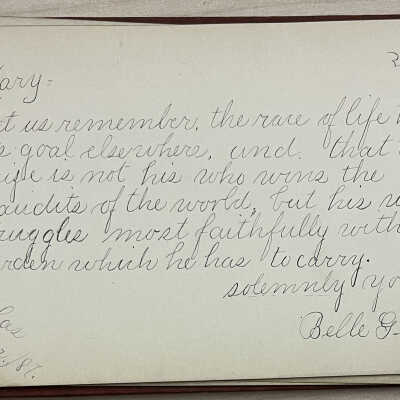 ary:
et us remember, the race of life
s goal elsewhere, and. that
is not his who wins the
audits of the world, but his
ruggles most faithfully with
rden which he has to carry.
solemnly yo
Belle G.
as
/87.